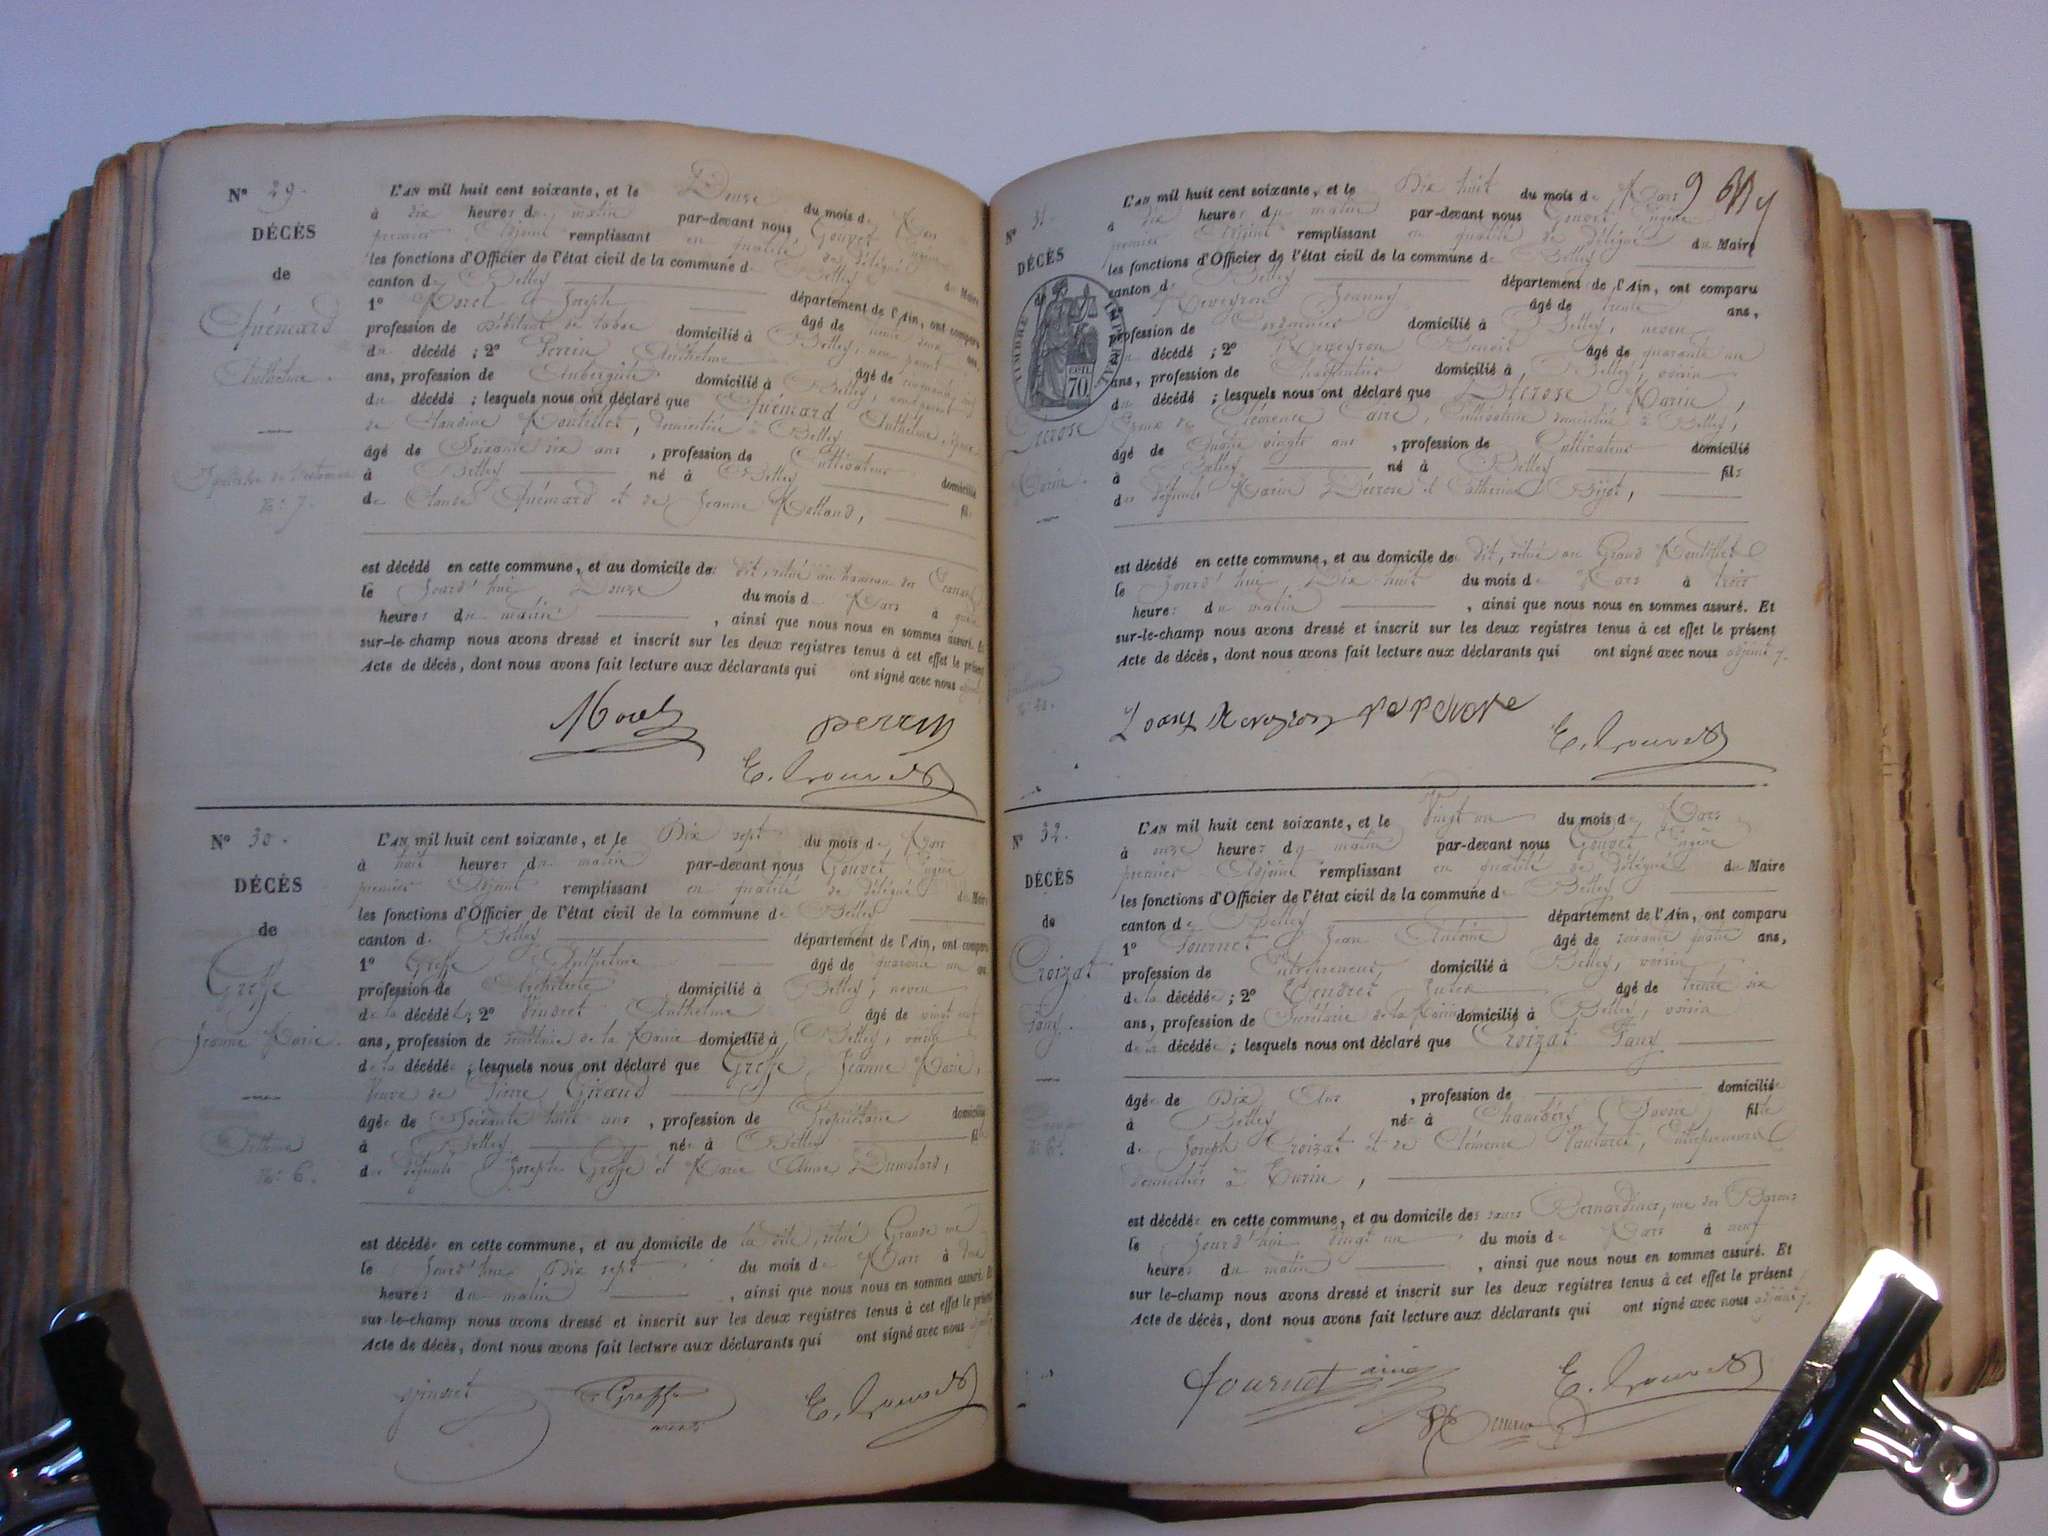 N° 29.
DÉCÈS
de
Quémard
Anthelme
L'AN mil huit cent soixante, et le Douze du mois de Mars
à dix heures du matin par-devant nous Gouvet Eugène
premier Adjoint remplissant en qualité de délégué du Maire
les fonctions d'Officier de l'état civil de la commune de Belley
canton de Belley département de l'Ain, ont comparu
1° Morel Joseph âgé de ans,
profession de Débitant de tabac domicilié à Belley, non parent
du décédé ; 2° Perrin Anthelme âgé de
ans, profession de Aubergiste domicilié à Belley,
du décédé ; lesquels nous ont déclaré que Quémard Anthelme, époux
de Claudine, domiciliée à Belley
âgé de Soixante dix ans, profession de Cultivateur domicilié
à Belley né à Belley fils
de Claude Quémard et de Jeanne Mottand,
est décédé en cette commune, et au domicile de dit, situé au hameau de
le Jourd'hui Douze du mois de Mars à
heures du matin, ainsi que nous nous en sommes assuré. Et
sur-le-champ nous avons dressé et inscrit sur les deux registres tenus à cet effet le présent
Acte de décès, dont nous avons fait lecture aux déclarants qui ont signé avec nous adjoint
Morel perrin
E. Gouvet
N° 30.
DÉCÈS
de
Greffe
Jeanne Marie.
N° 6.
L'AN mil huit cent soixante, et le Dix sept du mois de Mars
à huit heures du matin par-devant nous Gouvet Eugène
premier Adjoint remplissant en qualité de délégué du Maire
les fonctions d'Officier de l'état civil de la commune de Belley
canton de Belley département de l'Ain, ont comparu
1° Greffe Anthelme âgé de quarante un ans
profession de Architecte domicilié à Belley, neveu
de la décédée; 2° Vindret Anthelme âgé de vingt neuf
ans, profession de Secrétaire de la Mairie domicilié à Belley, voisin
de la décédée ; lesquels nous ont déclaré que Greffe Jeanne Marie,
Veuve de Pierre Giraud
âgée de Soixante huit ans, profession de Propriétaire domiciliée
à Belley née à Belley fille
de défunts Joseph Greffe et Marie Anne Dumolard,
est décédée en cette commune, et au domicile de la dite, situé Grande rue
le Jourd'hui Dix sept du mois de Mars à
heures du matin, ainsi que nous nous en sommes assuré. Et
sur-le-champ nous avons dressé et inscrit sur les deux registres tenus à cet effet le présent
Acte de décès, dont nous avons fait lecture aux déclarants qui ont signé avec nous
vindret Greffe E. Gouvet
9
N° 31.
DÉCÈS
de
TIMBRE IMPÉRIAL
70
Décrose
Marin.
L'AN mil huit cent soixante, et le Dix huit du mois de Mars
à dix heures du matin par-devant nous Gouvet Eugène
premier Adjoint remplissant en qualité de délégué du Maire
les fonctions d'Officier de l'état civil de la commune de Belley
canton de Belley département de l'Ain, ont comparu
Reveyron Joanny âgé de trente ans,
profession de Cordonnier domicilié à Belley, neveu
du décédé ; 2° Reveyron Benoit âgé de quarante un
ans, profession de Charpentier domicilié à Belley, voisin
du décédé ; lesquels nous ont déclaré que Décrose Marin,
Époux de Clémence Carre, Cultivatrice domiciliée à Belley,
âgé de Quatre vingts ans, profession de Cultivateur domicilié
à Belley né à Belley fils
des défunts Marin Décrose et Catherine Bijot,
est décédé en cette commune, et au domicile de dit, situé au Grand
le Jourd'hui Dix huit du mois de Mars à trois
heures du matin, ainsi que nous nous en sommes assuré. Et
sur-le-champ nous avons dressé et inscrit sur les deux registres tenus à cet effet le présent
Acte de décès, dont nous avons fait lecture aux déclarants qui ont signé avec nous adjoint
E. Gouvet
N° 32.
DÉCÈS
de
Croizat
Fany.
L'AN mil huit cent soixante, et le Vingt un du mois de Mars
à onze heures du matin par-devant nous Gouvet Eugène
premier Adjoint remplissant en qualité de délégué du Maire
les fonctions d'Officier de l'état civil de la commune de Belley
canton de Belley département de l'Ain, ont comparu
1° Fournet Jean Antoine âgé de soixante quatre ans,
profession de Entrepreneur, domicilié à Belley, voisin
de la décédée ; 2° âgé de trente six
ans, profession de Secrétaire de la Mairie domicilié à Belley, voisin
de la décédée ; lesquels nous ont déclaré que Croizat Fany
âgée de Dix Ans, profession de domiciliée
à Belley née à Chambéry (Savoie) fille
de Joseph Croizat et de Clémence, Entrepreneur
domiciliés à Turin,
est décédée en cette commune, et au domicile des sœurs Bernardines, rue des Barons
le Jourd'hui Vingt un du mois de Mars à neuf
heures du matin, ainsi que nous nous en sommes assuré. Et
sur le-champ nous avons dressé et inscrit sur les deux registres tenus à cet effet le présent
Acte de décès, dont nous avons fait lecture aux déclarants qui ont signé avec nous adjoint
fournet ainé E. Gouvet